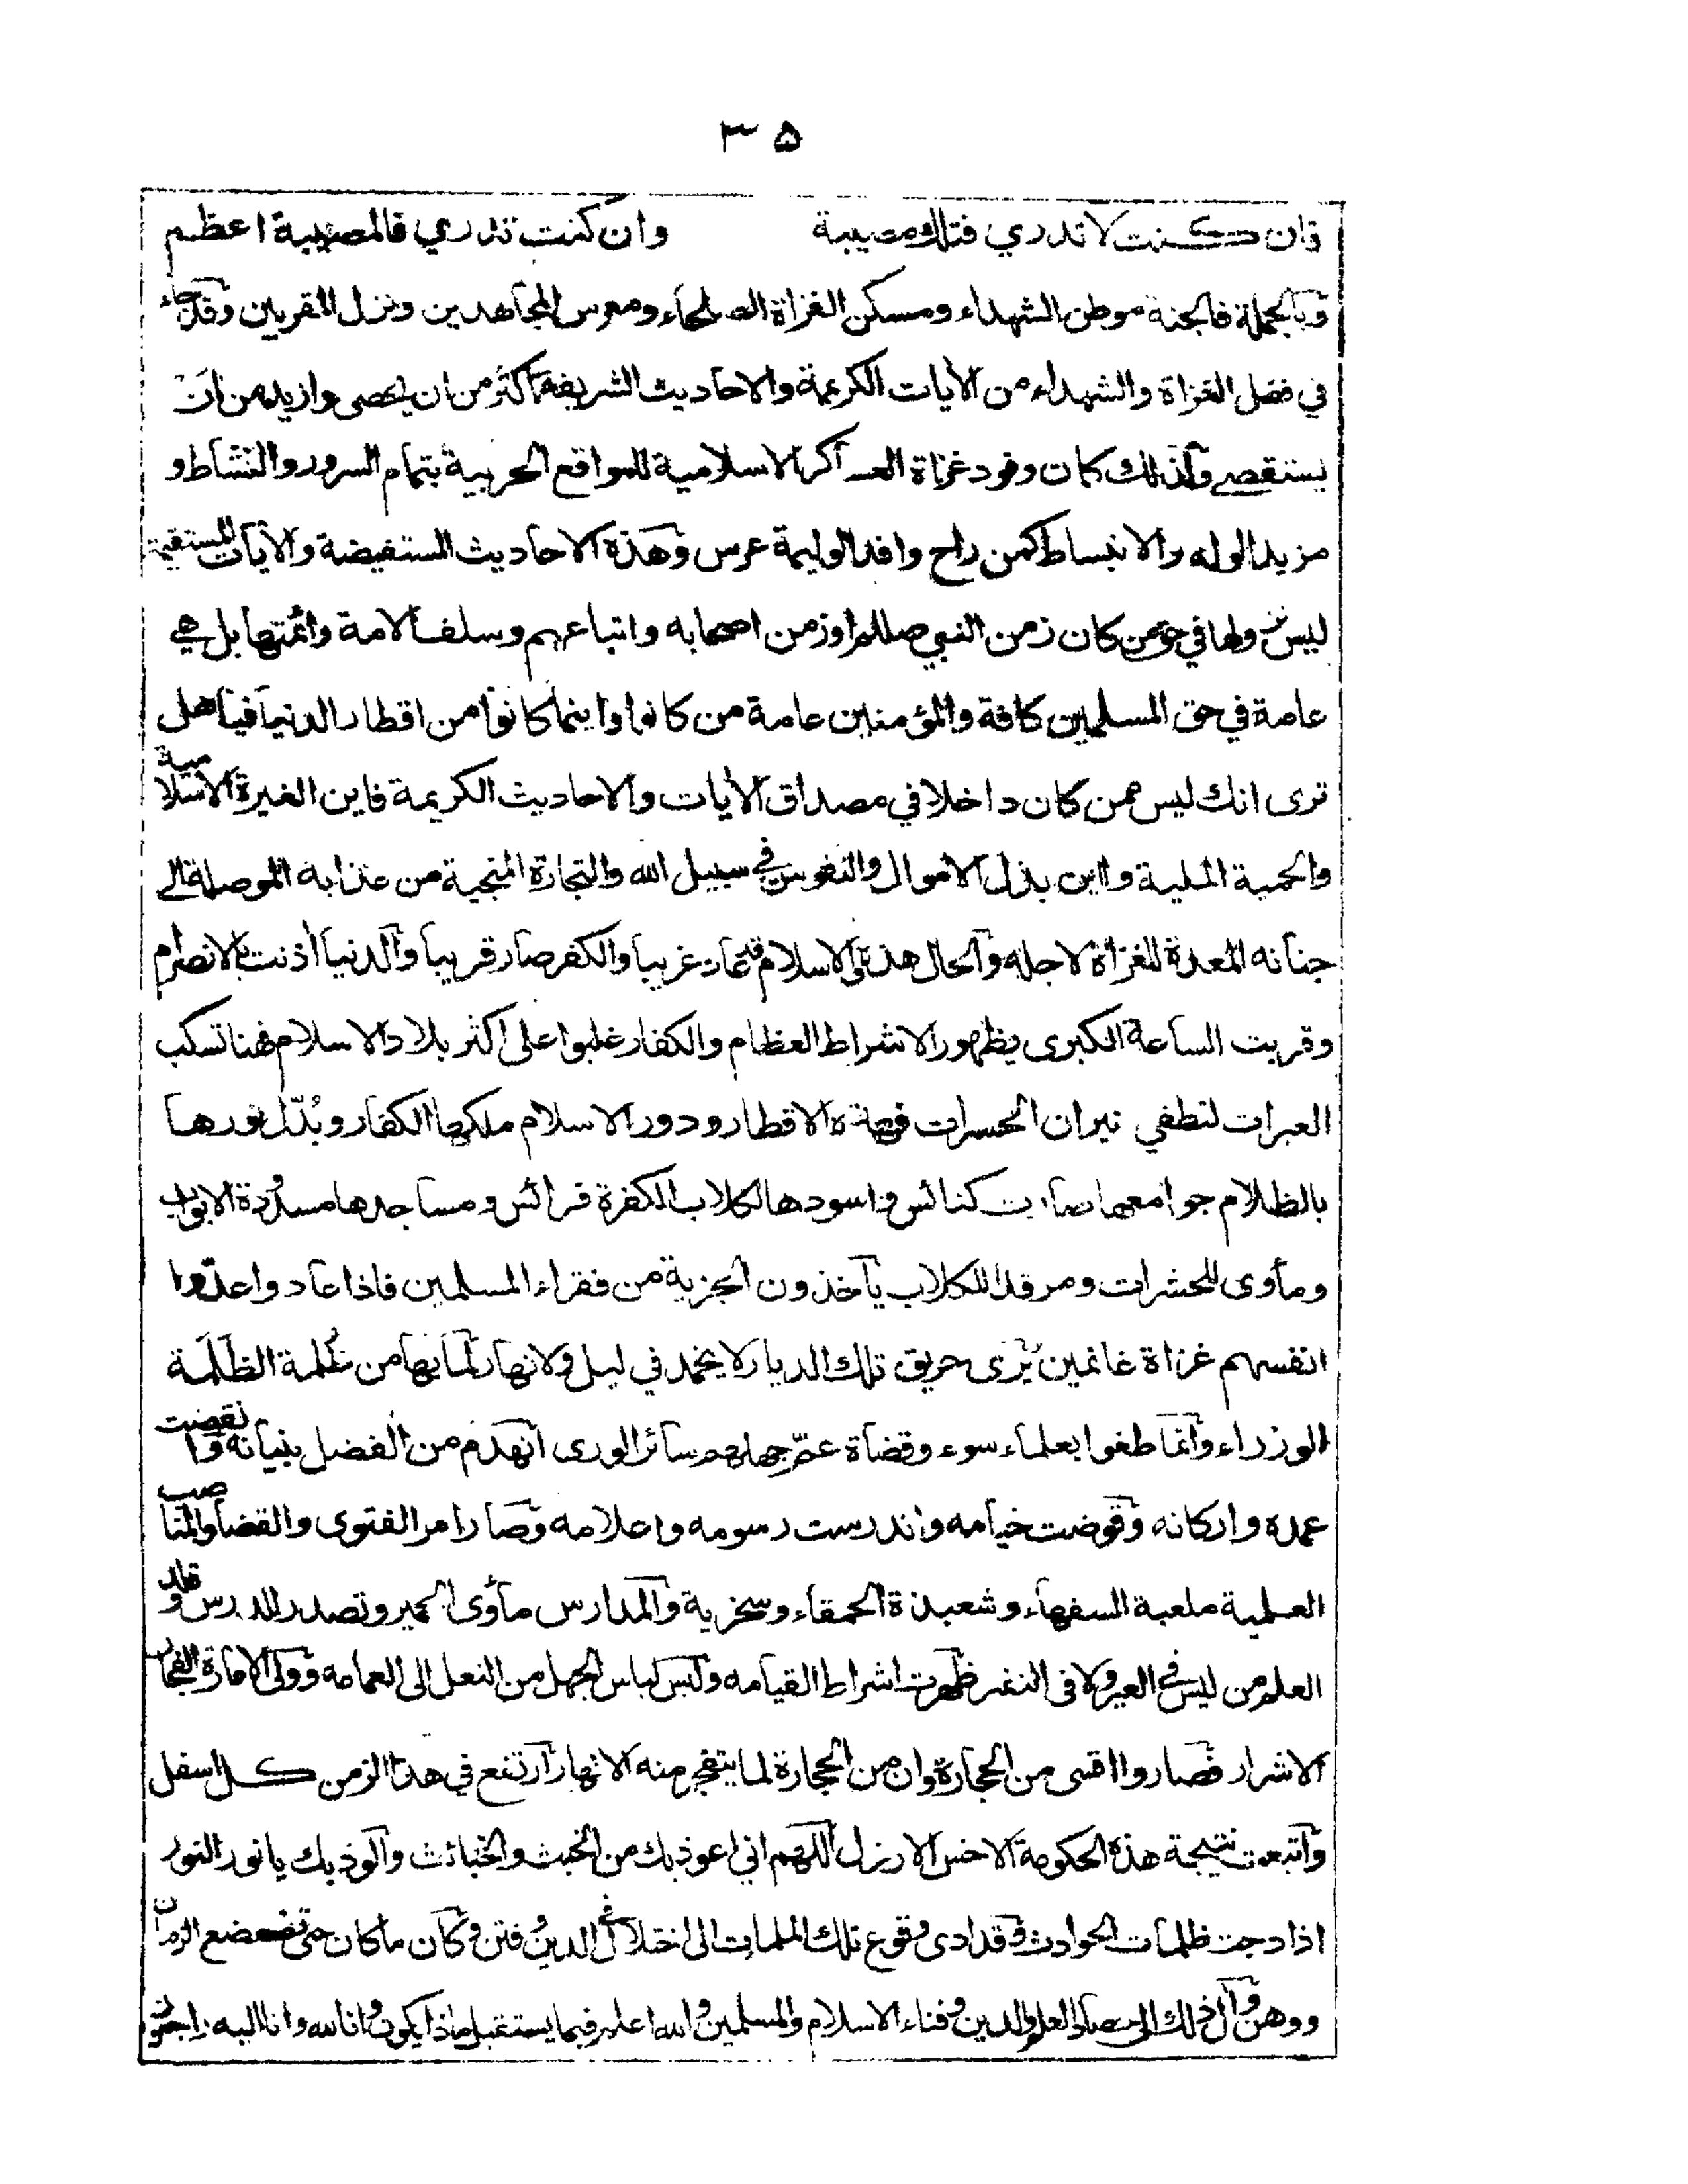 ٣٥
فان كنت لا تدري فتلك مصيبة وان كنت تدري فالمصيبة اعظم
وبالجملة فالجنة موطن الشهداء ومسكن الغزاة الصلحاء ومعرس المجاهدين ونزل المقربين وقد جاء
في فضل الغزاة والشهداء من الأيات الكريمة والاحاديث الشريفة اكثر من ان يحصى وازيد من ان
يستقصے ولذلك كان وفود غزاة العساكر الاسلامية للمواقع الحربية بتمام السرور والنشاط و
مزيد الوله والانبساط كمن راح وافدا لوليمة عرس وهذه الاحاديث المستفيضة والأيات المستقيمة
ليس نزولها في حق من كان زمن النبي صللم اوزمن اصحابه واتباعهم وسلف الامة وائمتها بل هي
عامة في حق المسلمين كافة والمؤمنين عامة من كانوا واينما كانوا من اقطار الدنيا فيا هل
ترى انك ليس ممن كان داخلا في مصداق الأيات والاحاديث الكريمة فاين الغيرة الاسلامية
والحمية الملية واين بذل الاموال والنفوس في سبيل الله والتجارة المنجية من عذابه الموصلة الے
جنانه المعدة للغزاة لاجله والحال هذه ان الاسلام قد عاد غريبا والكفر صار قريبا والدنيا أذنت بالانصرام
وقربت الساعة الكبرى بظهور الاشراط العظام والكفار غلبوا على اكثر بلاد الاسلام فهنا تسكب
العبرات لتطفي نيران الحسرات فهذه الاقطار ودور الاسلام ملكها الكفار وبُدّل نورها
بالظلام جوامعها صارت كنائس واسودها لكلاب الكفرة فرائس ومساجدها مسدُودة الابواب
ومأوى للحشرات ومرقد للكلاب يأخذون الجزية من فقراء المسلمين فاذا عادوا عدّوا
انفسهم غزاة غانمين يُرى حريق تلك الديار لا يخمد في ليل ولا نهار لما بها من ظُلمة الظَلَمة
الوزراء وانما طغوا بعلماء سوء وقضاة عمّ جهلهم سائر الورى انهدم من الفضل بنيانه وانقضت
عمده واركانه وقوضت خيامه واندرست رسومه واعلامه وصار امر الفتوى والقضا والمناصب
العلمية ملعبة السفهاء وشعبذة الحمقاء وسخرية والمدارس مأوى الحمير وتصدر للدرس وقلد
العلم من ليس في العير ولا فى النفير ظهرت اشراط القيامه ولبس لباس الجهل من النعل الى العمامه وولى الامارة الفجار
الاشرار فصاروا اقسى من الحجارة وان من الحجارة لما يتفجر منه الانهار ارتفع في هذا الزمن كل اسفل
واتبعت نتيجة هذه الحكومة الاخس الارزل اللهم اني اعوذ بك من الخبث والخبائث والوذ بك يا نور النور
اذا دجت ظلمات الحوادث وقد ادى وقوع تلك الملمات الى اختلال في الدين وفتن وكان ما كان حتى تضعضع الزمان
ووهن وآل ذلك الى العلم والدين وفناء الاسلام والمسلمين والله اعلم فيما يستقبل ماذا يكون وانا لله وانا اليه راجعون